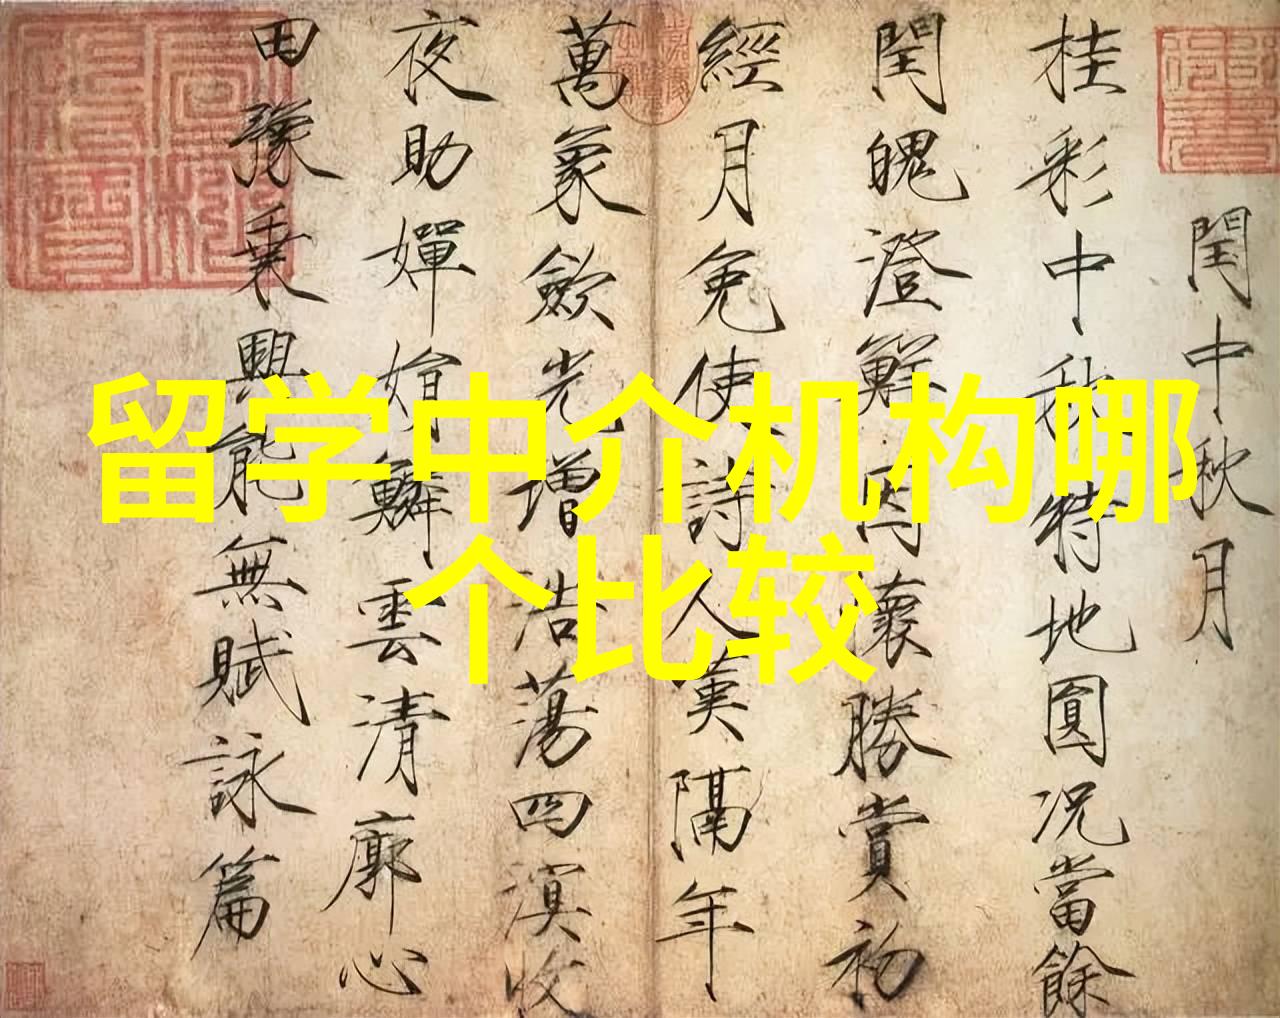 留学中介机构哪
个比较
閏中秋月
桂彩中秋特地圓况當餘
閏魄澄鮮因懷勝賞初
經月免使詩人嘆隔年
萬象歛光增浩蕩四溟收
夜助嬋娟鱗雲清廓心
田豫乗興能無賦詠篇